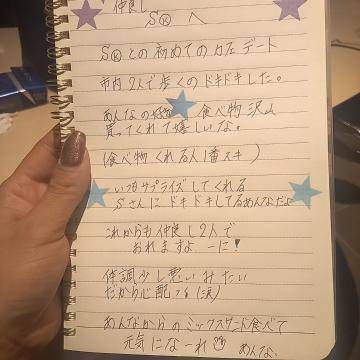 仲良し
SⓀ へ
SⓀとの初めてのカフェデート
市内2人で歩くのドキドキした。
あんなの好 食べ物沢山
買ってくれて嬉しいな。
(食べ物くれる人1番スキ)
いつもサプライズしてくれる
Sさんにドキドキしてるあんなだよ
これからも仲良し2人で
おれますよーに!
体調少し悪いみたい
だから心配する(涙)
あんなからのミックスサンド食べて
元気になーれ あんな。